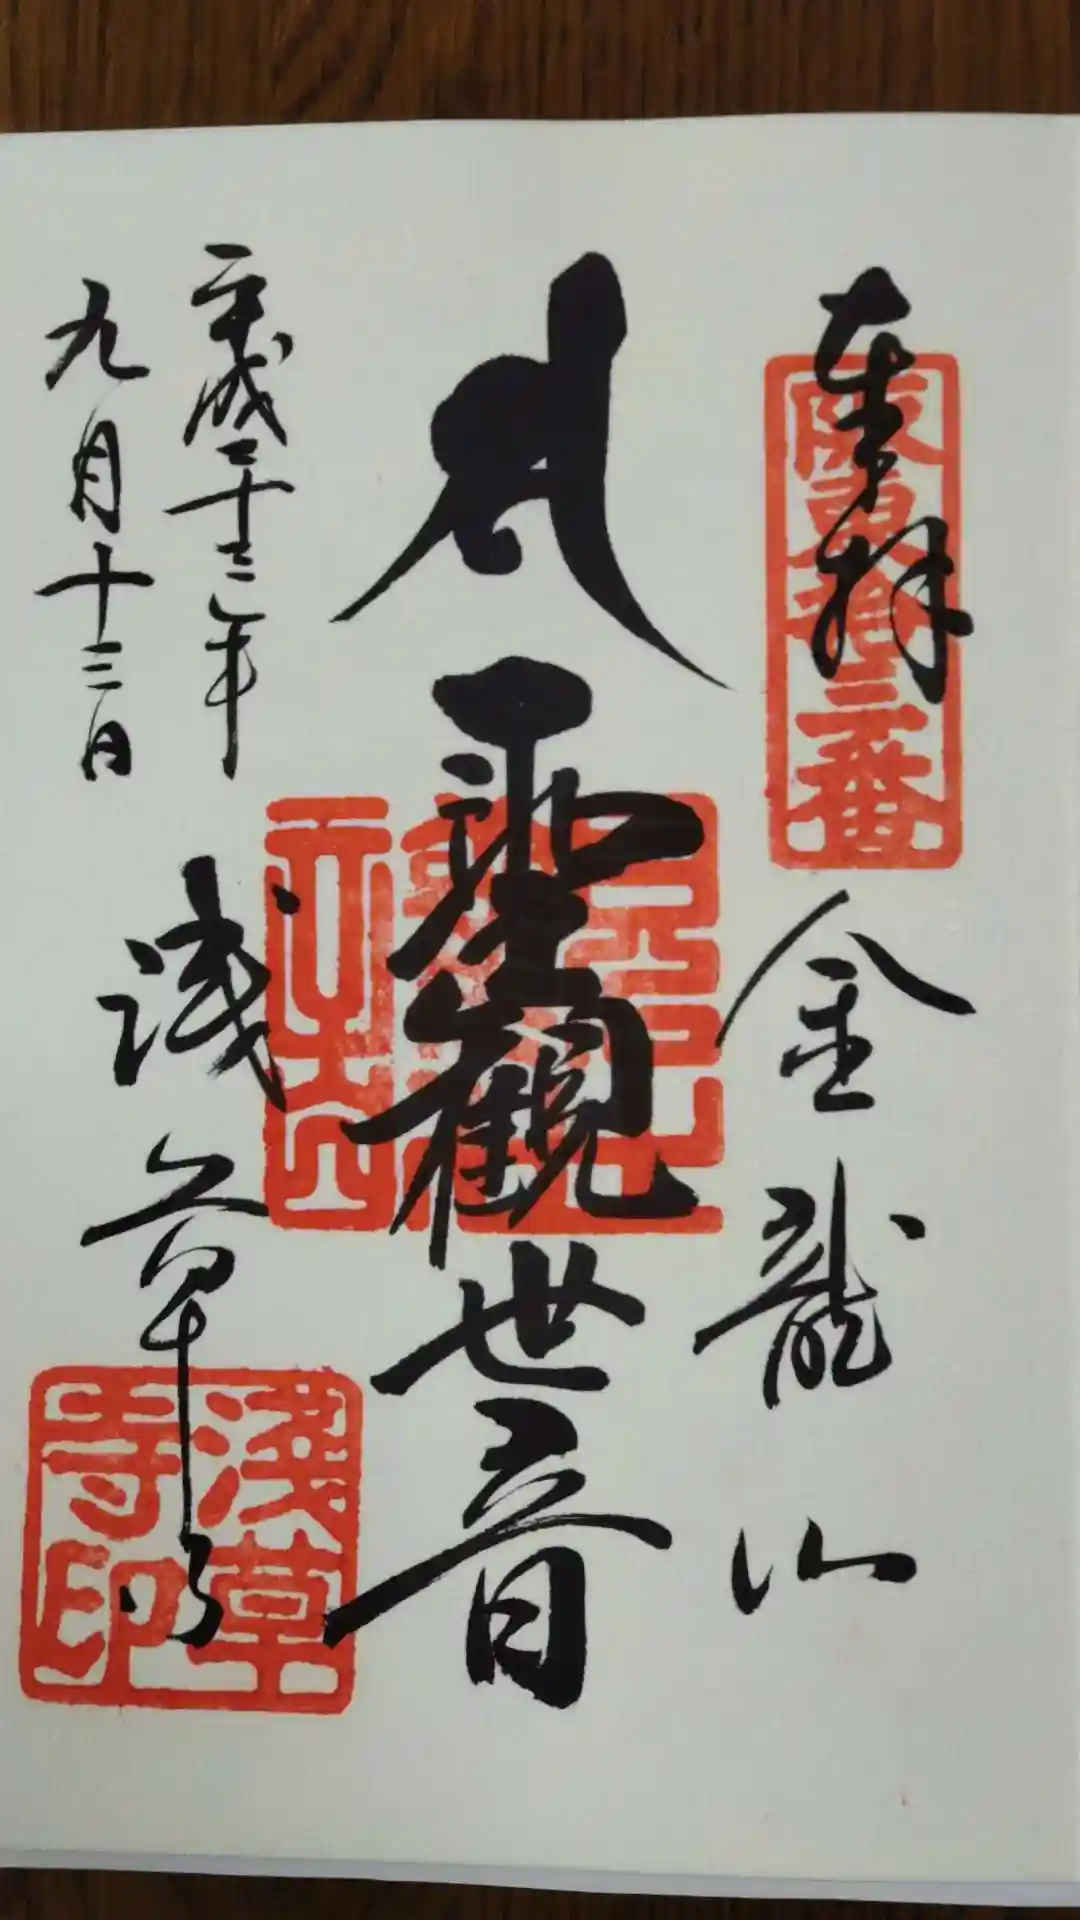 奉拝
坂東第十三番
金龍山
聖観世音
平成二十三年
九月十三日
浅草寺
浅草寺印